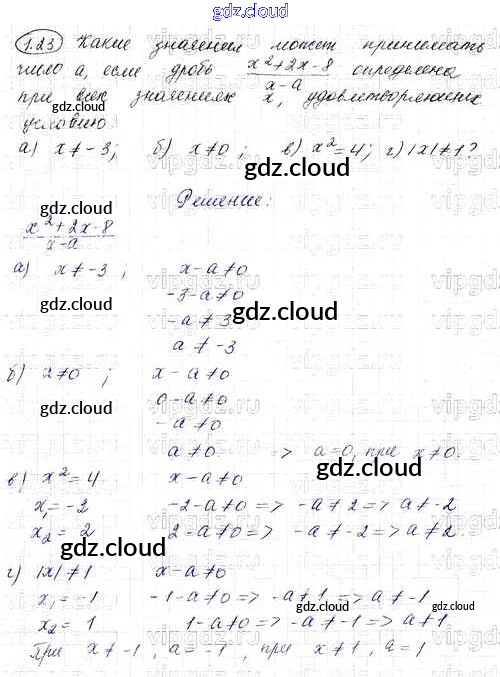 gdz.cloud
1.23 Какие значения может принимать
число a, если дробь (x²+2x-8)/(x-a) определена
при всех значениях x, удовлетворяющих
условию
gdz.cloud
а) x ≠ -3; б) x ≠ 0; в) x² = 4; г) |x| ≠ 1?
vipgdz
Решение:
gdz.cloud
(x²+2x-8)/(x-a)
а) x ≠ -3; x-a ≠ 0
-3-a ≠ 0
gdz.cloud
-a ≠ 3
gdz.cloud
a ≠ -3
б) x ≠ 0; x-a ≠ 0
0-a ≠ 0
gdz.cloud
-a ≠ 0
a ≠ 0 => a=0, при x ≠ 0.
в) x² = 4 x-a ≠ 0
gdz.cloud
x₁ = -2 -2-a ≠ 0 => -a ≠ 2 => a ≠ -2
x₂ = 2 2-a ≠ 0 => -a ≠ -2 => a ≠ 2
gdz.cloud
г) |x| ≠ 1 x-a ≠ 0
x₁ = -1 -1-a ≠ 0 => -a ≠ 1 => a ≠ -1
gdz.cloud
x₂ = 1 1-a ≠ 0 => -a ≠ -1 => a ≠ 1
При x ≠ -1, a = -1, при x ≠ 1, a = 1